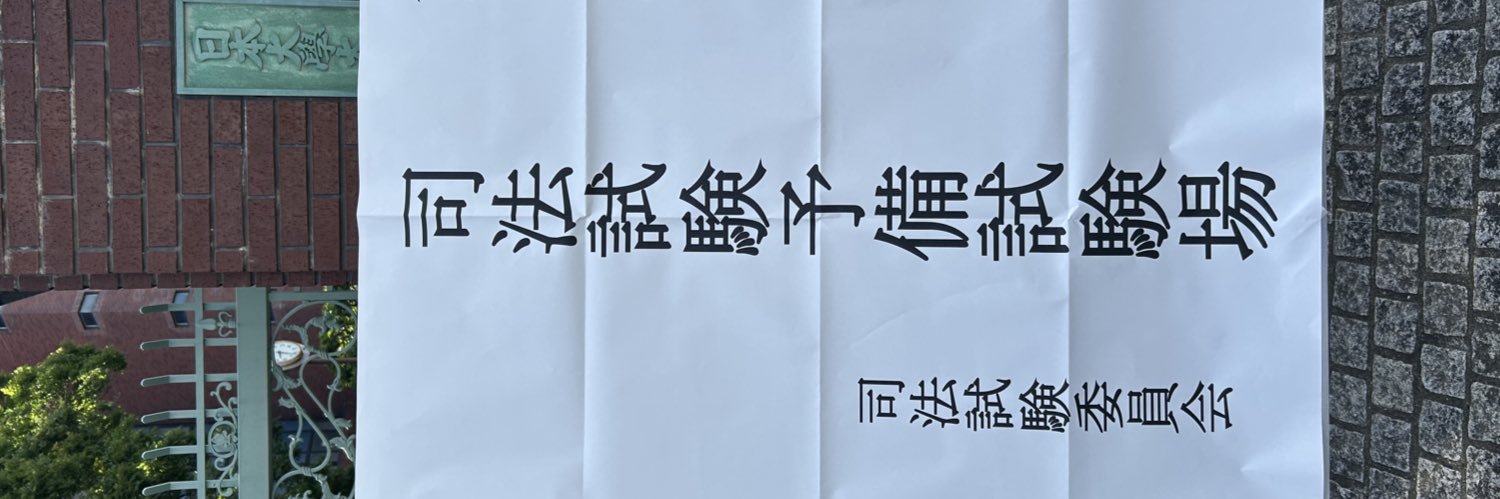 司法試験予備試験場
司法試験委員会
日本大學